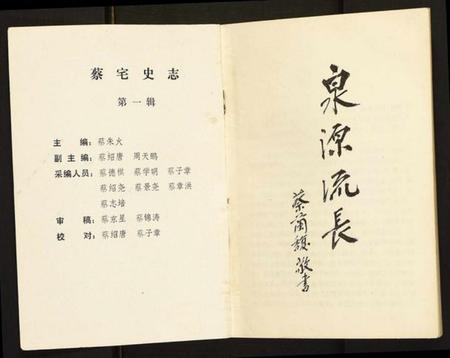 蔡宅史志
第一辑
主编：蔡朱火
副主编：蔡绍唐 周天鹏
采编人员：蔡德棋 蔡学明 蔡子章
蔡绍尧 蔡景尧 蔡章洪
蔡志培
审稿：蔡京星 蔡锦涛
校对：蔡绍唐 蔡子章
泉源流長
蔡蘭馥敬書